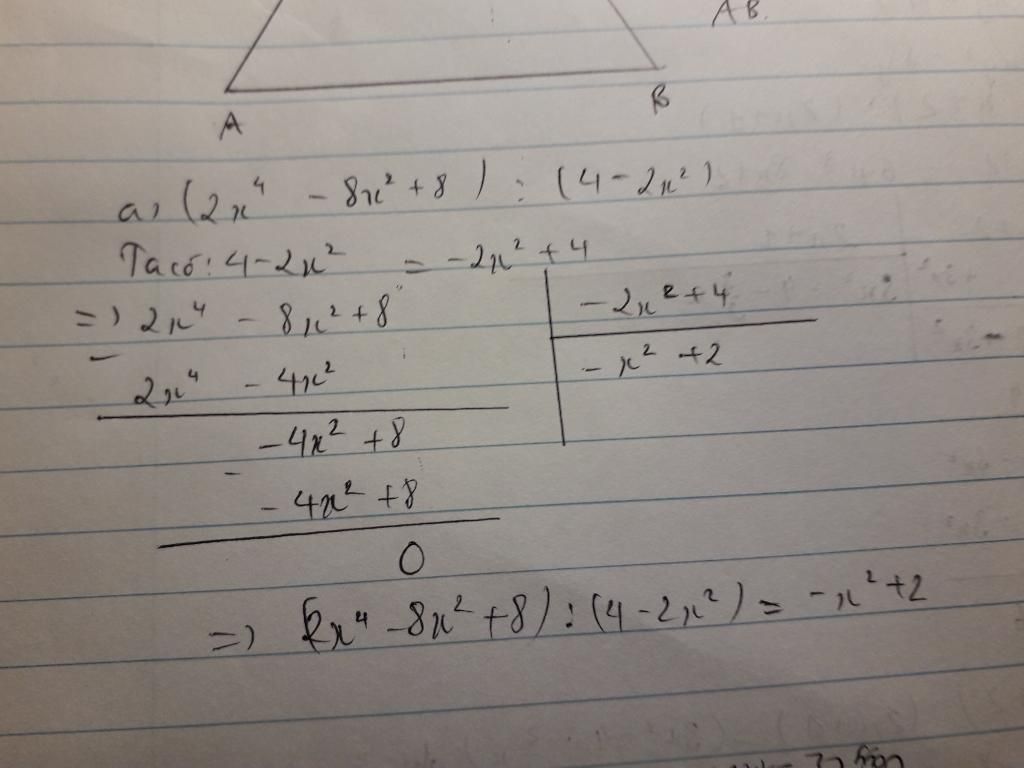 AB.
A B
a, (2x⁴ - 8x² + 8) : (4 - 2x²)
Ta có: 4 - 2x² = -2x² + 4
=) 2x⁴ - 8x² + 8 | -2x² + 4
-
2x⁴ - 4x² | -x² + 2
-4x² + 8
-
-4x² + 8
0
=) (2x⁴ - 8x² + 8) : (4 - 2x²) = -x² + 2